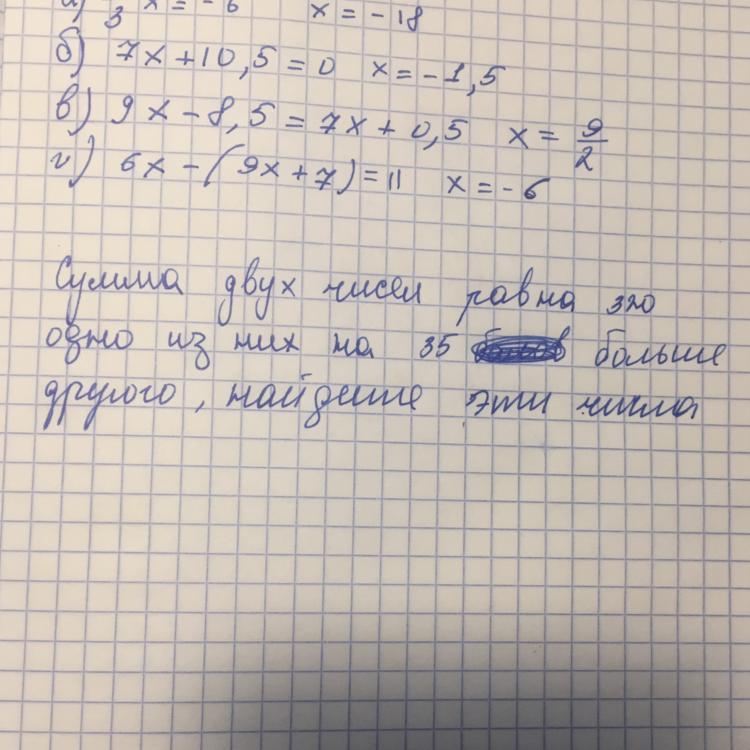 а) 3 x = -6 x = -18
б) 7x + 10,5 = 0 x = -1,5
в) 9x - 8,5 = 7x + 0,5 x = 9/2
г) 6x - (9x + 7) = 11 x = -6
Сумма двух чисел равна 320
одно из них на 35 больше
другого, найдите эти числа